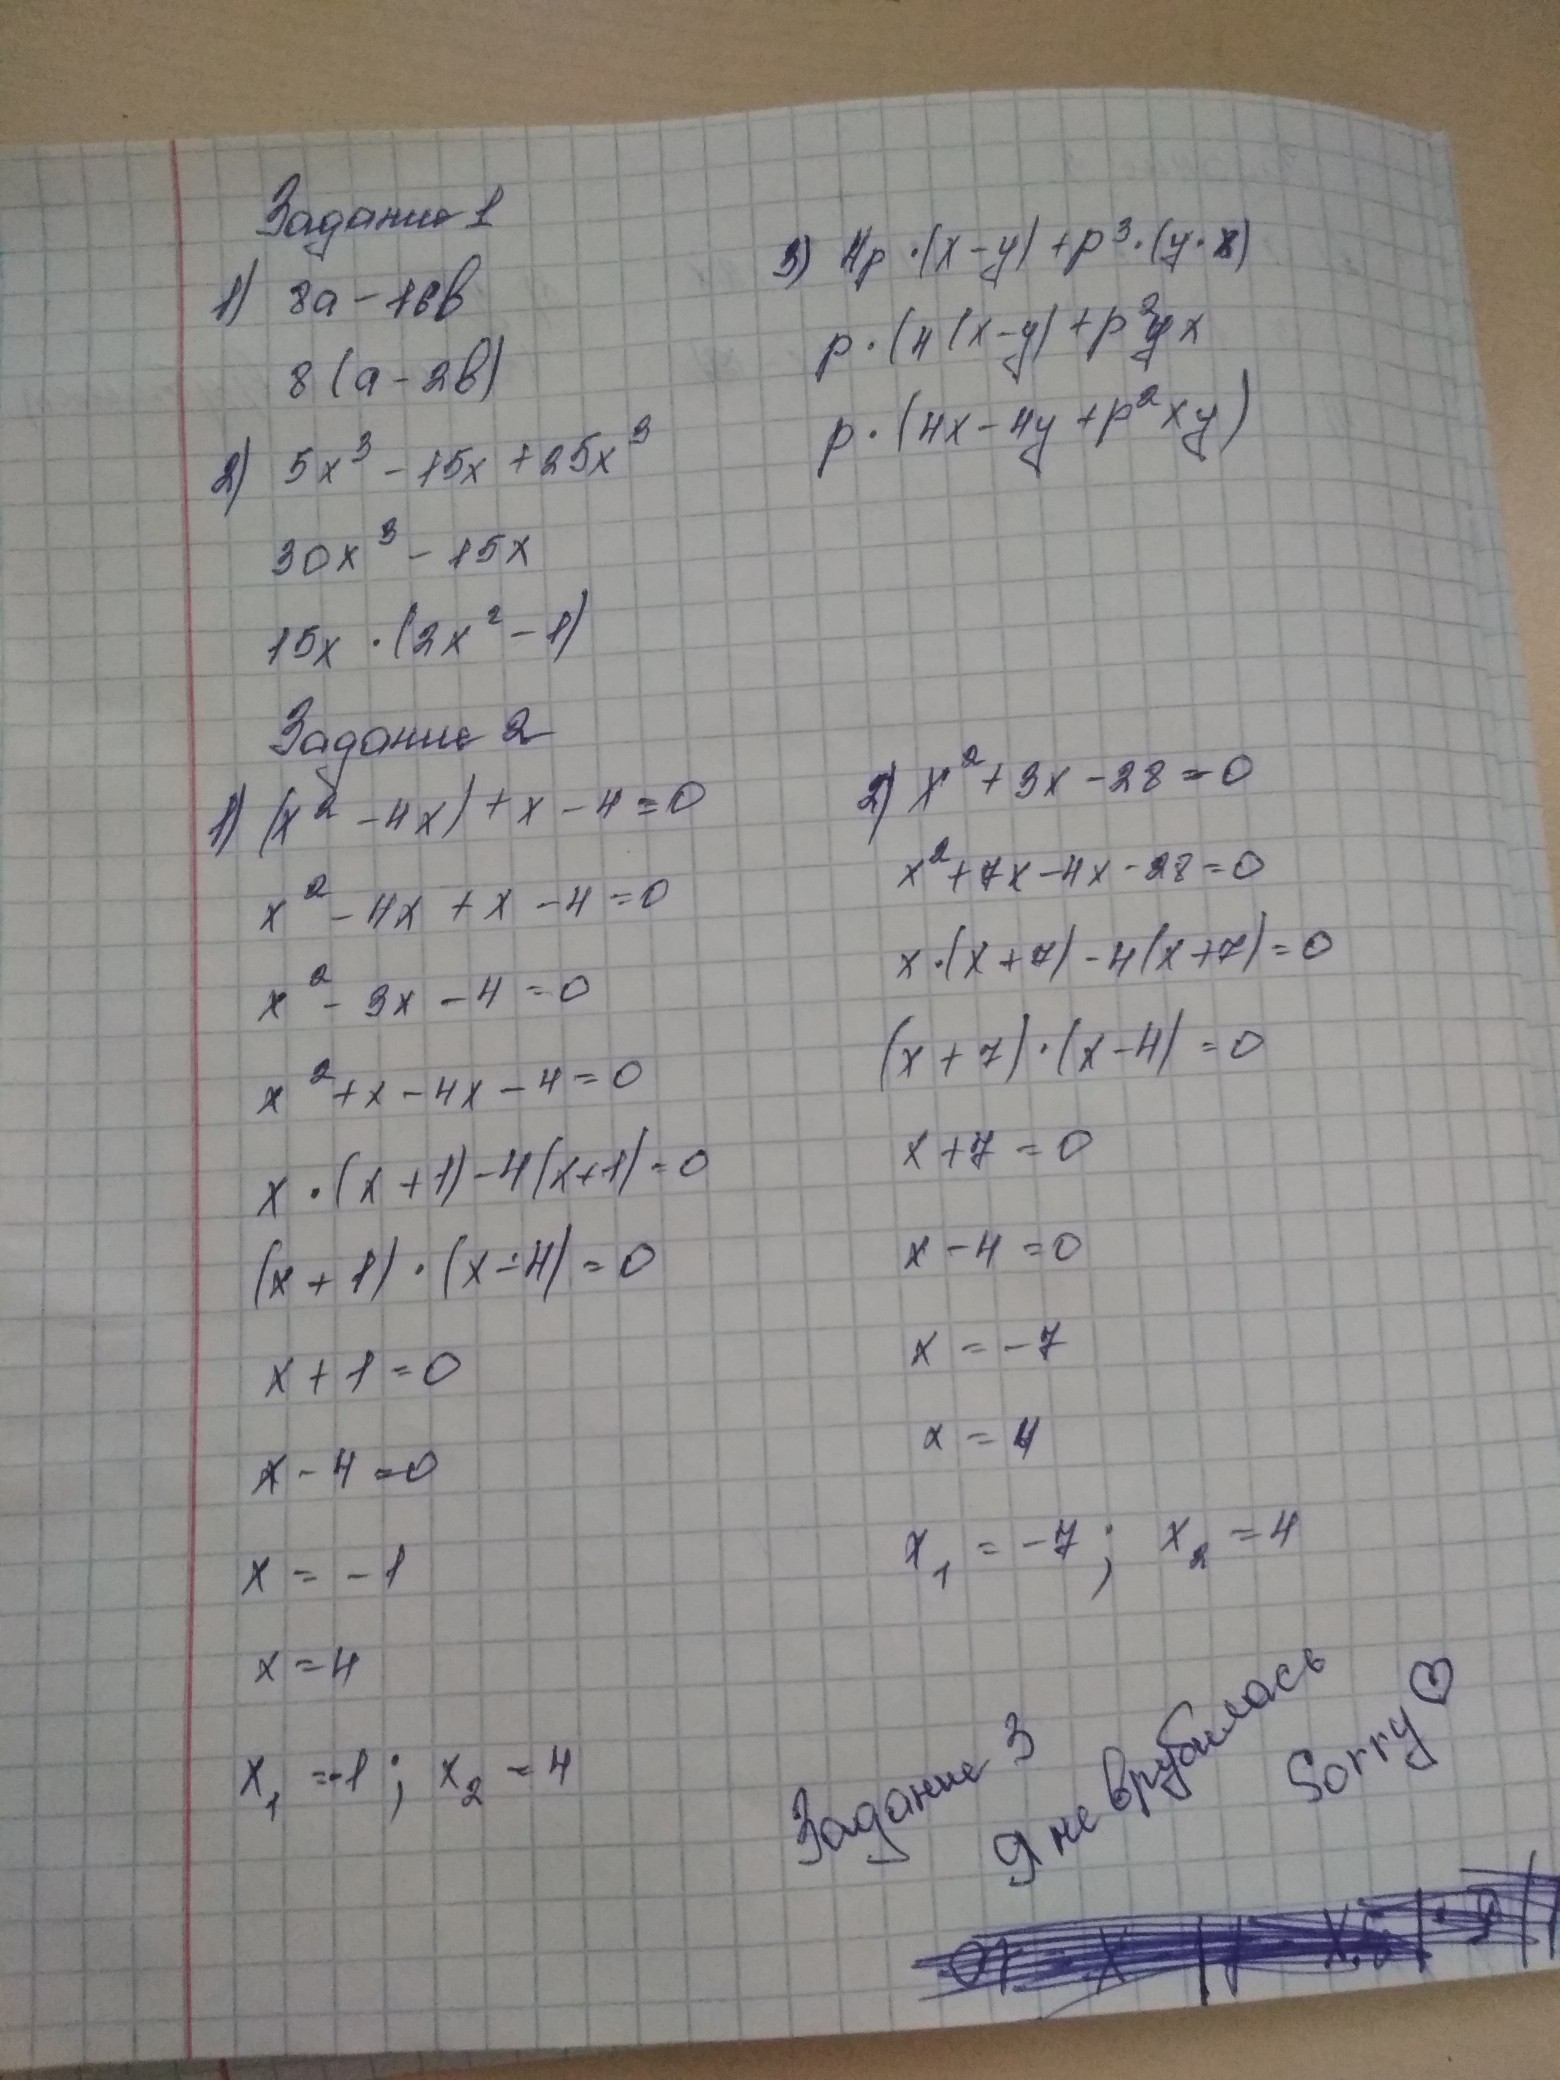 Задание 1
1) 8a - 16b
8(a - 2b)
2) 5x³ - 15x + 25x³
30x³ - 15x
15x · (2x² - 1)
3) 4p · (x - y) + p³ · (y · x)
p · (4(x - y) + p²yx
p · (4x - 4y + p²xy)
Задание 2
1) (x² - 4x) + x - 4 = 0
x² - 4x + x - 4 = 0
x² - 3x - 4 = 0
x² + x - 4x - 4 = 0
x · (x + 1) - 4(x + 1) = 0
(x + 1) · (x - 4) = 0
x + 1 = 0
x - 4 = 0
x = -1
x = 4
x₁ = -1 ; x₂ = 4
2) x² + 3x - 28 = 0
x² + 7x - 4x - 28 = 0
x · (x + 7) - 4(x + 7) = 0
(x + 7) · (x - 4) = 0
x + 7 = 0
x - 4 = 0
x = -7
x = 4
x₁ = -7 ; x₂ = 4
Задание 3
Я не врубилась
Sorry ♡